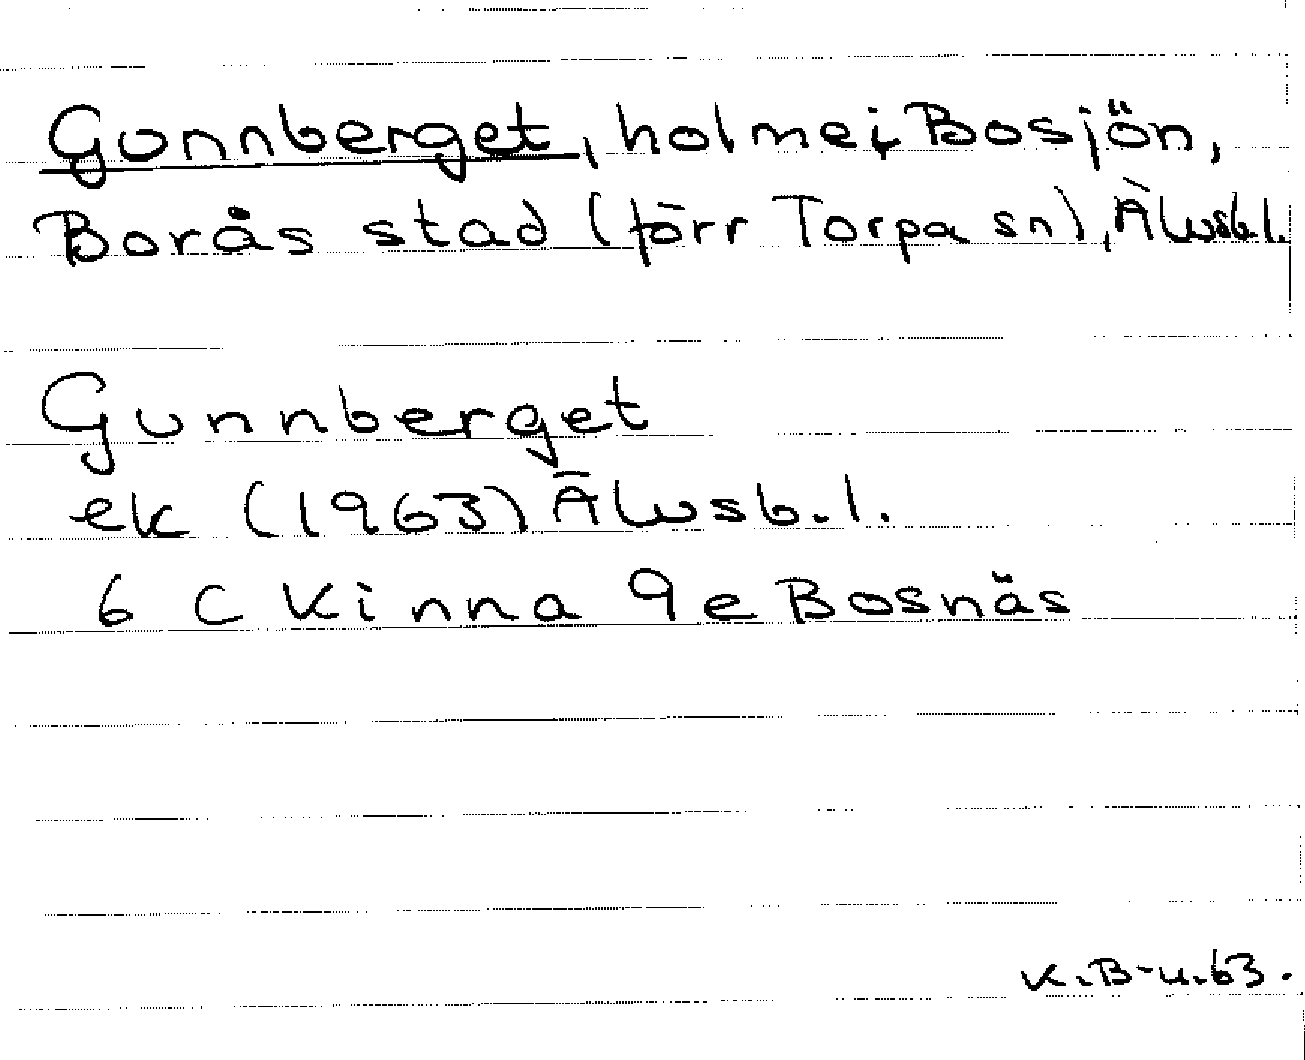 Gunnberget, holme i Bosjön,
Borås stad (förr Torpa sn), Älvsb.l.
Gunnberget
ek (1963) Älvsb.l.
6 C Kinna 9e Bosnäs
K.B-u.63.